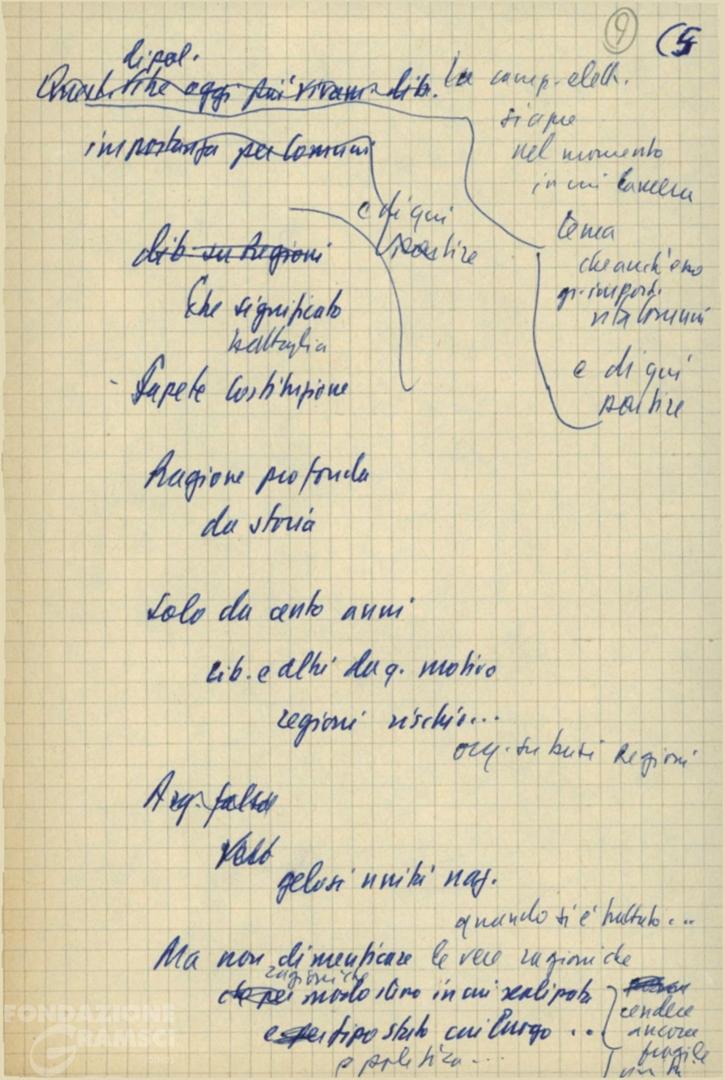 9 (5
di pol.
Questi che aggi più vivam. dib.
importanza per Comuni
La camp. elett.
si apre
nel momento
in cui Camera
tema
che anch'esso
gr. import.
vita Comuni
e di qui
partire
e di qui
partire
dib. su Regioni
Che significato
battaglia
- Sapete Costituzione
Ragione profonda
da storia
Solo da cento anni
Lib. e altri da q. motivo
regioni rischio...
org. su basi Regioni
Arg. falso
gelosi unità naz.
quando si è trattato...
Ma non dimenticare le vere ragioni che
ragioni che
per modo stesso in cui realizzata
e per tipo stato cui luogo ...
e politica ...
rendere
ancora
fragile
unità
FONDAZIONE
GRAMSCI